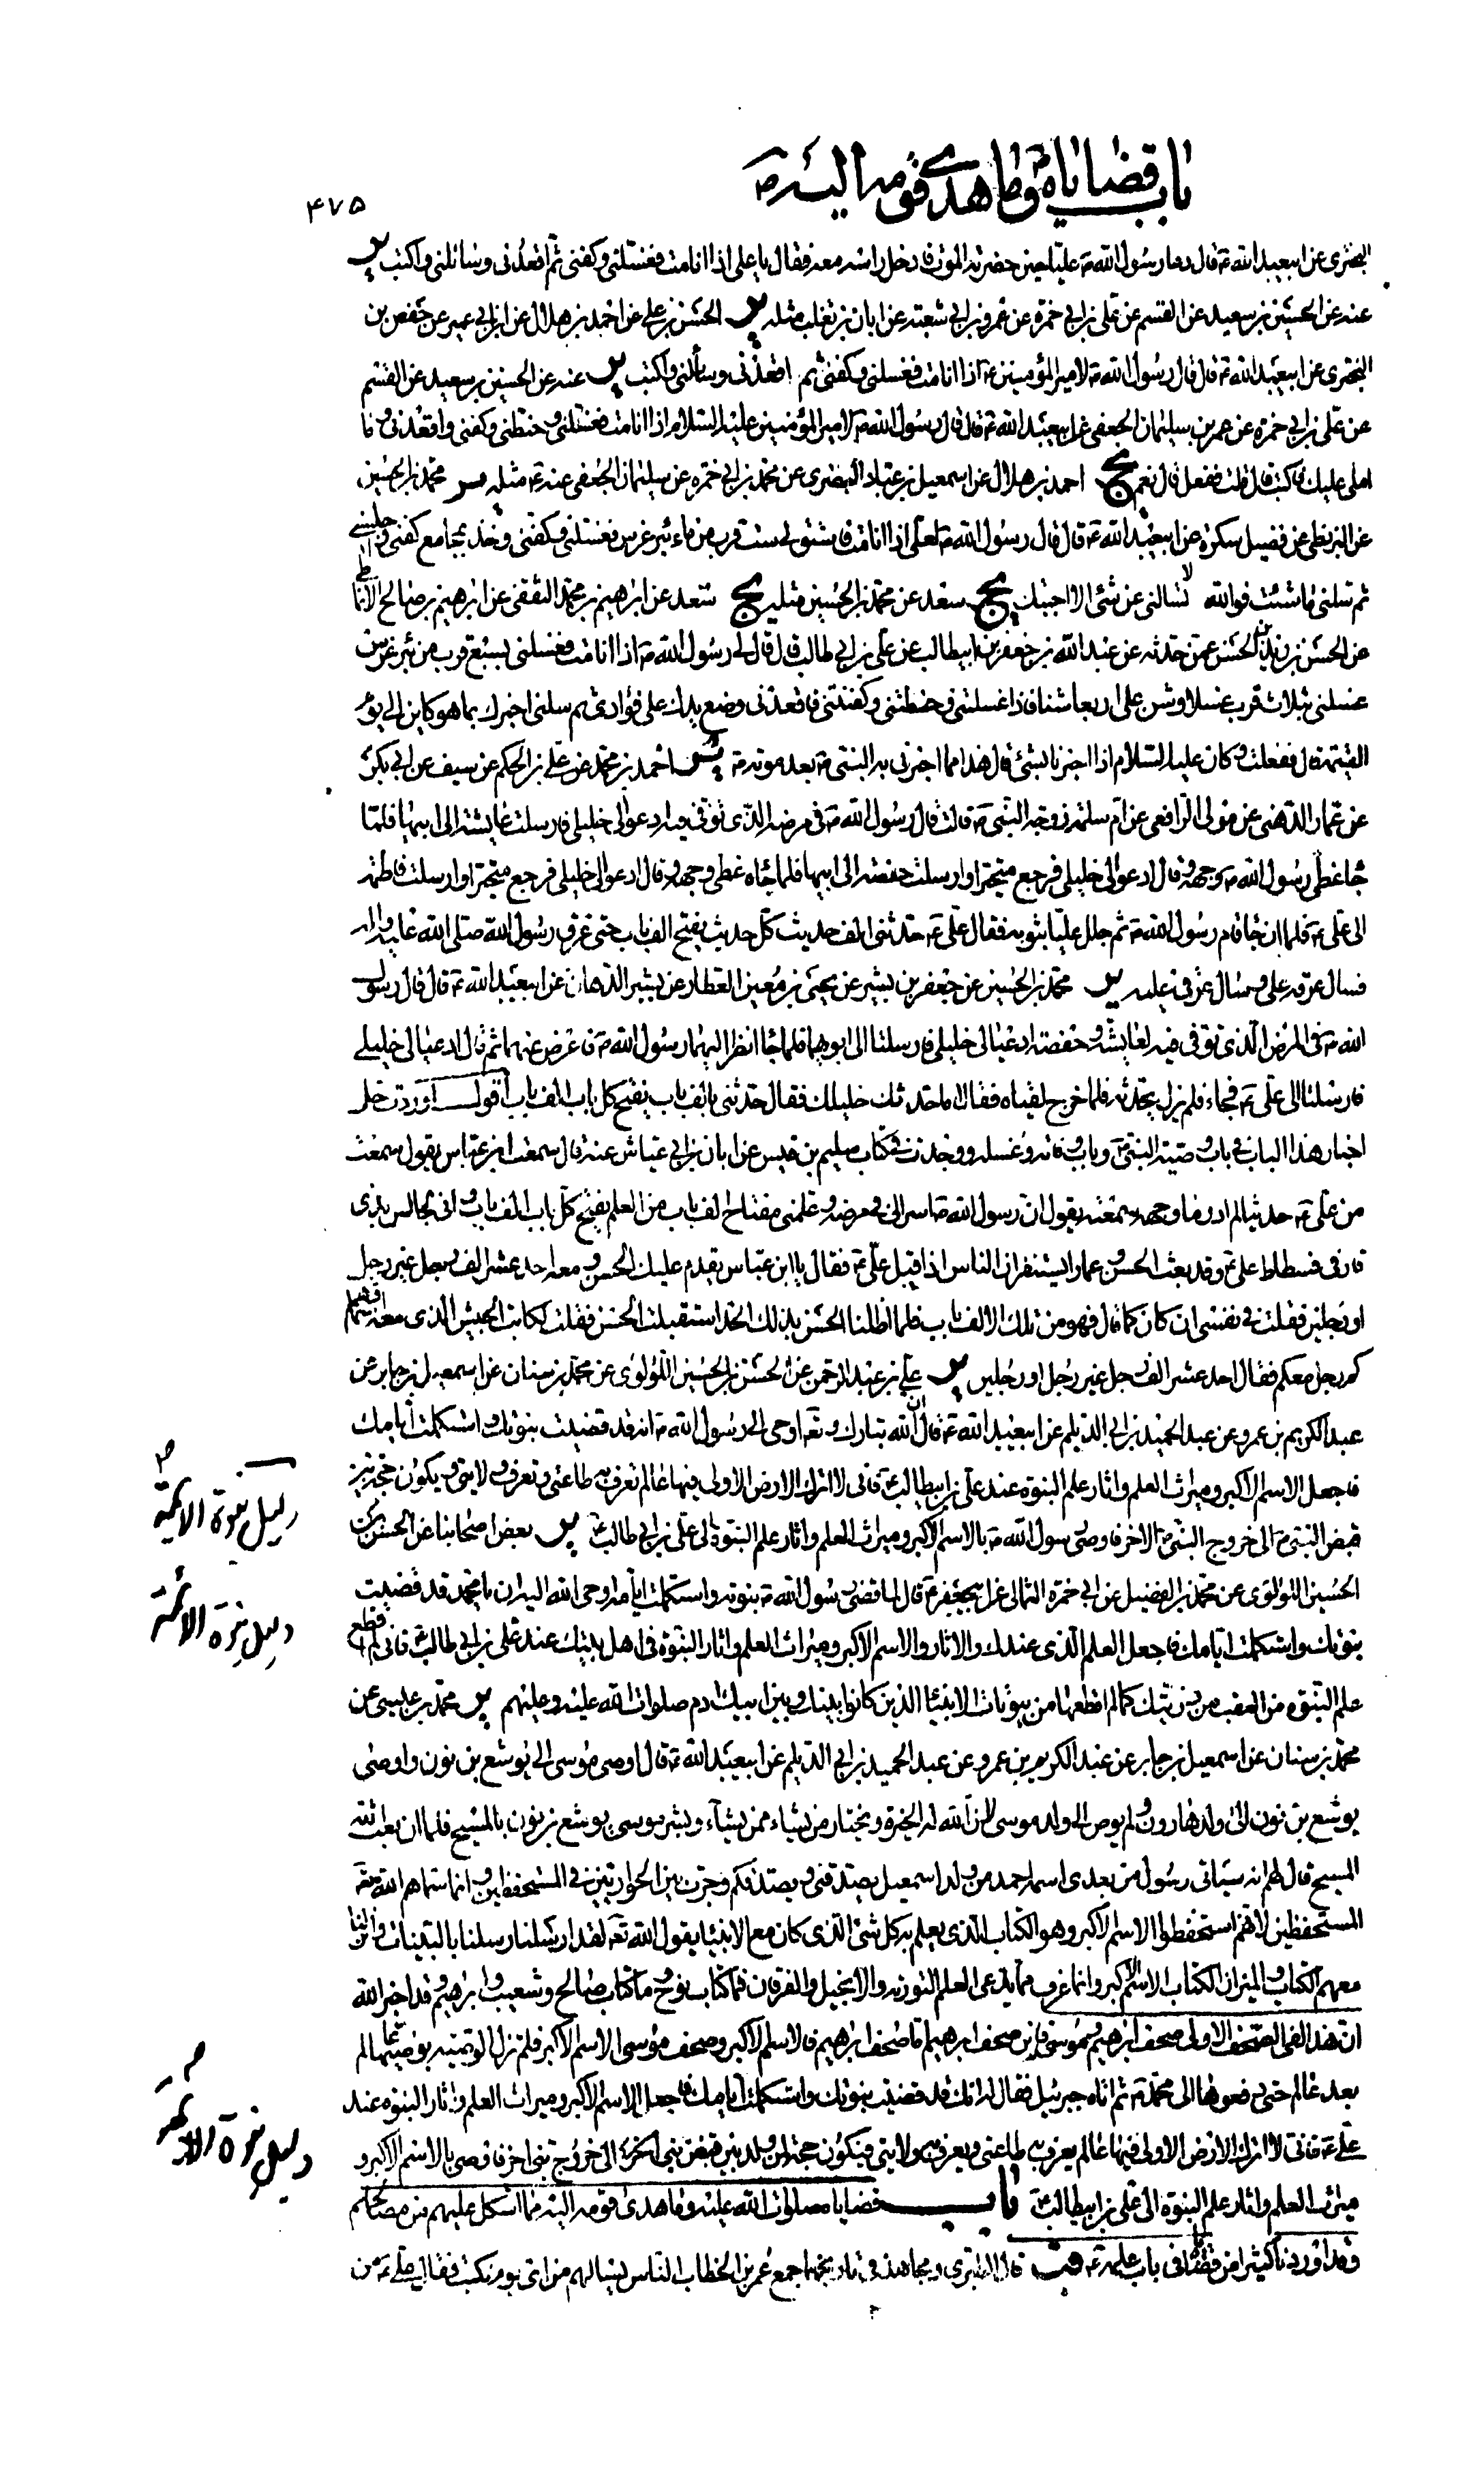 باب قضاياه ص وما هدى قومه اليه ص
۴۷۵
البختري عن ابيعبد الله ع قال دعا رسول الله ص عليا حين حضرته الموت فادخل راسه معه فقال يا علي اذا انا مت فغسلني وكفني ثم اقعدني وسائلني واكتب ير
عنه عن الحسين بن سعيد عن القسم عن علي بن ابي حمزة عن عمرو بن ابي شعبة عن ابان بن تغلب مثله ير الحسن بن علي عن احمد بن هلال عن ابن ابي عمير عن حفص بن
البختري عن ابيعبد الله ع قال قال رسول الله ص لامير المؤمنين ع اذا انا مت فغسلني وكفني ثم اقعدني وسائلني واكتب ير عنه عن الحسين بن سعيد عن القسم
عن علي بن ابي حمزة عن عمر بن سليمان الجعفي عن ابيعبد الله ع قال قال رسول الله ص لامير المؤمنين عليه السلام اذا انا مت فغسلني وحنطني وكفني واقعدني وما
املي عليك فاكتب قال قلت ففعل قال نعم يج احمد بن هلال عن اسمعيل بن عباد البصري عن محمد بن ابي حمزة عن سليمان الجعفي عنه ع مثله ير محمد بن الحسين
عن البزنطي عن فضيل سكرة عن ابيعبد الله ع قال قال رسول الله ص لعلي اذا انا مت فاستق لي ست قرب من ماء بئر غرس فغسلني وكفني وخذ بمجامع كفني واجلسني
ثم سلني ما شئت فوالله لا تسالني عن شئ الا اجبتك يج سعد عن محمد بن الحسين مثله يج سعد عن ابرهيم بن محمد الثقفي عن ابرهيم بن صالح الانماطي
عن الحسن بن زيد بن الحسن عمن حدثه عن عبد الله بن جعفر بن ابيطالب عن علي بن ابي طالب قال قال لي رسول الله ص اذا انا مت فغسلني بسبع قرب من بئر غرس
غسلني بثلاث قرب غسلا وشن علي اربعا شنا فاذا غسلتني وحنطتني وكفنتني فاقعدني وضع يدك على فؤادي ثم سلني اخبرك بما هو كاين الى يوم
القيمة قال ففعلت وكان عليه السلام اذا اخبرنا بشئ قال هذا مما اخبرني به النبي ص بعد موته ص احمد بن محمد عن علي بن الحكم عن سيف عن ابي بكر
عن عمار الدهني عن مولى الرافعي عن ام سلمة زوجة النبي ص قالت قال رسول الله ص في مرضه الذي توفي فيه ادعوا لي خليلي فارسلت عايشة الى ابيها فلما
جا غطى رسول الله ص وجهه وقال ادعوا لي خليلي فرجع متحيرا وارسلت حفصة الى ابيها فلما جاه غطى وجهه وقال ادعوا لي خليلي فرجع متحيرا وارسلت فاطمة
الى علي ع فلما ان جا قام رسول الله ص ثم جلل عليا بثوبه فقال علي ع حدثني الف حديث كل حديث يفتح الف باب حتى عرق رسول الله صلى الله عليه واله
فسال عرقه علي وسال عرقي عليه ير محمد بن الحسين عن جعفر بن بشير عن يحيى بن معين العطار عن بشير الدهان عن ابيعبد الله ع قال قال رسول
الله ص في المرض الذي توفي فيه لعايشة وحفصة ادعيا لي خليلي فارسلتا الى ابويهما فلما جاا نظر اليهما رسول الله ص فاعرض عنهما ثم قال ادعيا لي خليلي
فارسلتا الى علي ع فجاء فلم يزل يحدثه فلما خرج لقياه فقالا ما حدثك خليلك فقال حدثني بالف باب يفتح كل باب الف باب اقول اوردت جل
اخبار هذا الباب في باب وصية النبي ص وباب وفاته وغسله ووجدت في كتاب سليم بن قيس عن ابان بن ابي عياش عنه قال سمعت ابن عباس يقول سمعت
من علي ع حديثا لم ادر ما وجهه سمعته يقول ان رسول الله ص اسر الي في مرضه وعلمني مفتاح الف باب من العلم يفتح كل باب الف باب واني لجالس بذي
قار في فسطاط علي ع وقد بعث الحسن وعمارا يستنفران الناس اذ اقبل علي ع فقال يا ابن عباس يقدم عليك الحسن ومعه احد عشر الف رجل غير رجل
او رجلين فقلت في نفسي ان كان كما قال فهو من تلك الالف باب فلما اظلنا الحسن بذلك الجند استقبلت الحسن فقلت لكاتب الجيش الذي معه اسماؤهم
كم رجل معكم فقال احد عشر الف رجل غير رجل او رجلين ير علي بن عبد الرحمن عن الحسن بن الحسين اللؤلؤي عن محمد بن سنان عن اسمعيل بن جابر عن
عبد الكريم بن عمرو عن عبد الحميد بن ابي الديلم عن ابيعبد الله ع قال ان الله تبارك وتع اوحى الى رسول الله ص انه قد قضيت نبوتك واستكملت ايامك
فاجعل الاسم الاكبر وميراث العلم واثار علم النبوة عند علي بن ابيطالب ع فاني لا اترك الارض الا ولي فيها عالم تعرف به طاعتي وتعرف به ولايتي ويكون حجة بين
قبض النبي ص الى خروج النبي الاخر فاوصى رسول الله ص بالاسم الاكبر وميراث العلم واثار علم النبوة الى علي بن ابي طالب ع ير بعض اصحابنا عن الحسن بن
الحسين اللؤلؤي عن محمد بن الفضيل عن ابي حمزة الثمالي عن ابيجعفر ع قال لما قضى رسول الله ص نبوته واستكملت ايامه اوحى الله اليه ان يا محمد قد قضيت
نبوتك واستكملت ايامك فاجعل العلم الذي عندك والاثار والاسم الاكبر وميراث العلم واثار النبوة في اهل بيتك عند علي بن ابي طالب ع فاني لم اقطع
علم النبوة من العقب من ذريتك كما لم اقطعها من بيوتات الانبيا الذين كانوا بينك وبين ابيك ادم صلوات الله عليه وعليهم ير محمد بن عيسى عن
محمد بن سنان عن اسمعيل بن جابر عن عبد الكريم بن عمرو عن عبد الحميد بن ابي الديلم عن ابيعبد الله ع قال اوصى موسى الى يوشع بن نون واوصى
يوشع بن نون الى ولد هارون ولم يوص الى ولد موسى لان الله له الخيرة ويختار من يشاء ممن يشآء وبشر موسى يوشع بن نون بالمسيح فلما ان بعث الله
المسيح قال لهم انه سياتي رسول من بعدي اسمه احمد من ولد اسمعيل يصدقني ويصدقكم وجرت بين الحواريين في المستحفظين وانما سماهم الله تع
المستحفظين لانهم استحفظوا الاسم الاكبر وهو الكتاب الذي يعلم به كل شئ الذي كان مع الانبيا يقول الله تع لقد ارسلنا رسلنا بالبينات وانزلنا
معهم الكتاب والميزان الكتاب الاسم الاكبر وانما عرف مما يدعى العلم التورية والانجيل والفرقان فما كتاب نوح وما كتاب صالح وشعيب وابرهيم وقد اخبر الله
ان هذا لفي الصحف الاولى صحف ابرهيم وموسى فاين صحف ابرهيم اما صحف ابرهيم فالاسم الاكبر وصحف موسى الاسم الاكبر فلم تزل الوصية يوصيها عالم
بعد عالم حتى دفعوها الى محمد ص ثم اتاه جبرئيل فقال له انك قد قضيت نبوتك واستكملت ايامك فاجعل الاسم الاكبر وميراث العلم واثار النبوة عند
علي ع فاني لا اترك الارض الا ولي فيها عالم يعرف به طاعتي ويعرف به ولايتي فيكون حجة لمن ولد بين قبض نبي الى خروج نبي اخر فاوصى بالاسم الاكبر و
ميراث العلم واثار علم النبوة الى علي بن ابيطالب ع باب قضاياه صلوات الله عليه وما هدى قومه اليه مما اشكل عليهم من مصالحهم
وقد اوردنا كثيرا من قضاياه في باب علمه ع قب قال الطبري ومجاهد في تاريخيهما جمع عمر بن الخطاب الناس يسالهم من اي يوم نكتب فقال علي ع من
دليل نبوة الائمة
دليل نبوة الائمة
دليل نبوة الائمة